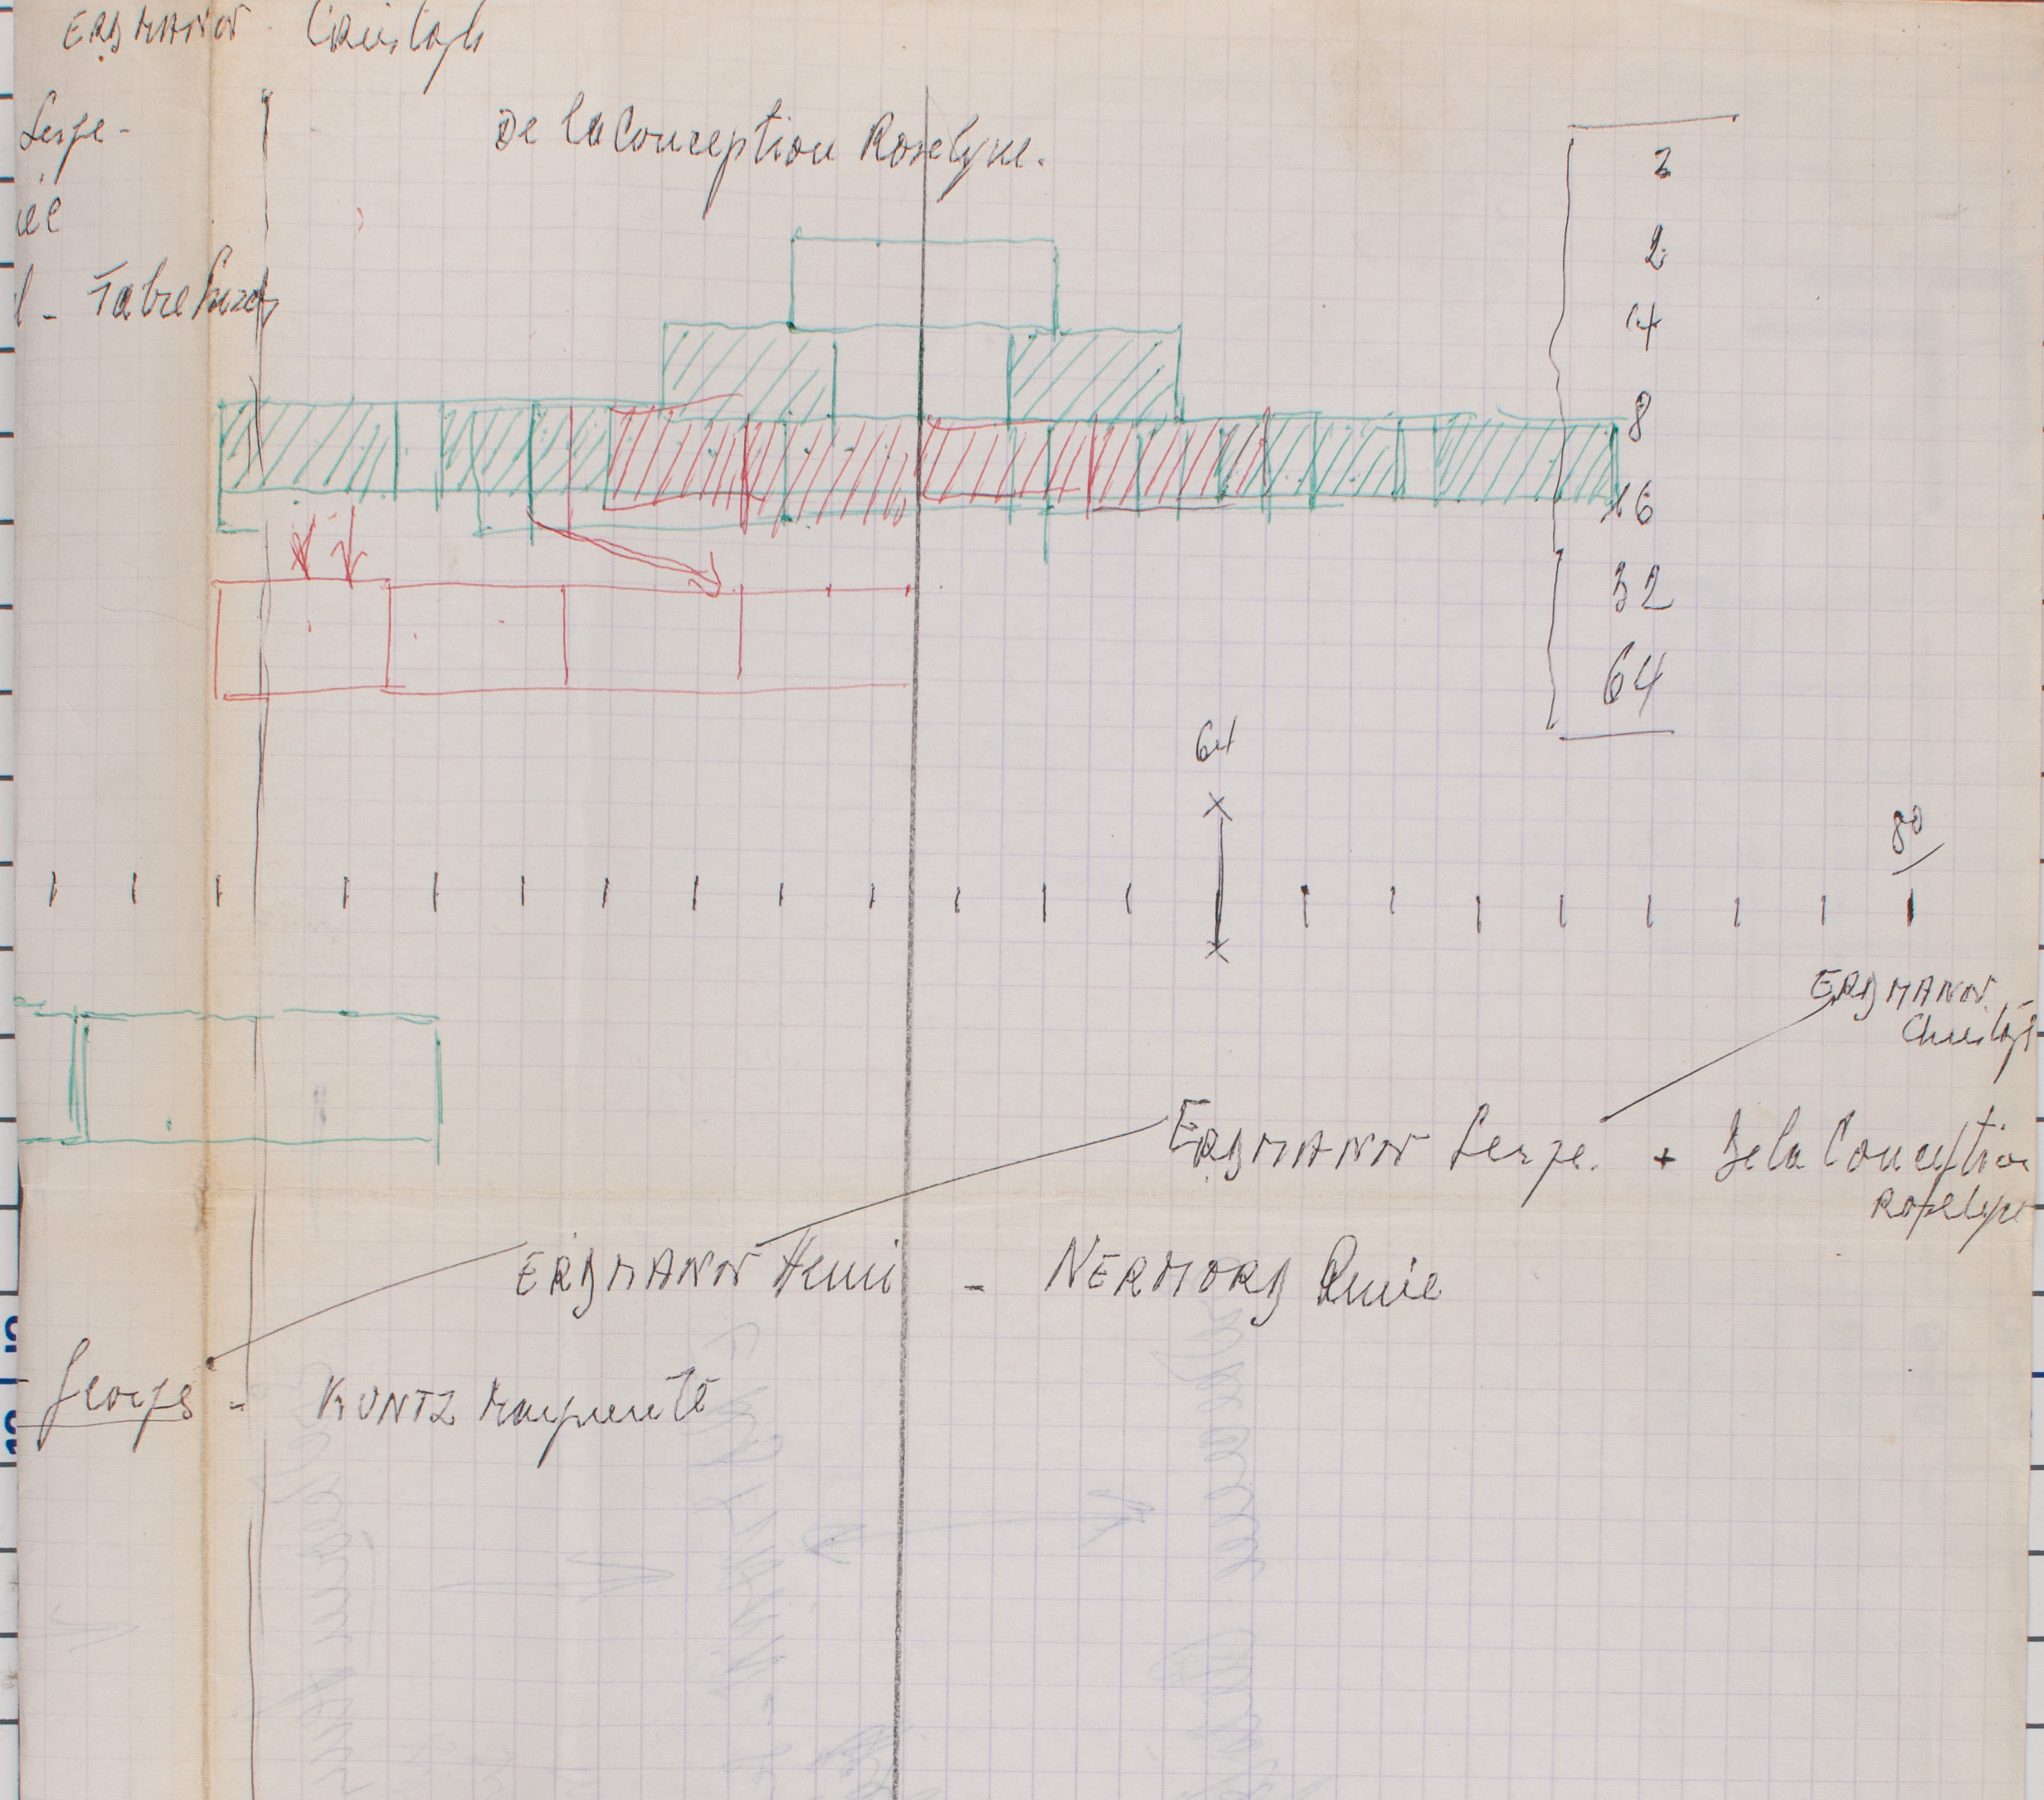 ERDMANN Christoph
Serge -
De la Conception Roselyne.
2
2
4
8
16
32
64
64
80
ERDMANN
Christoph
ERDMANN Serge. + De la Conception
Roselyne
ERDMANN Henri - NERMORD
Georges - KUNTZ Marguerite